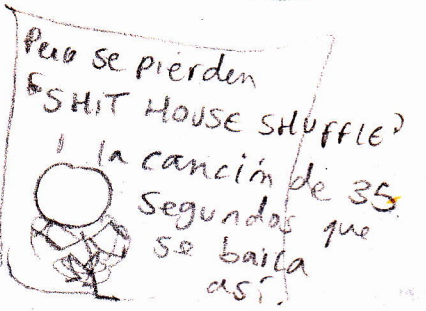 Pero se pierden
"SHIT HOUSE SHUFFLE"
la canción de 35
segundos que
se baila
así.